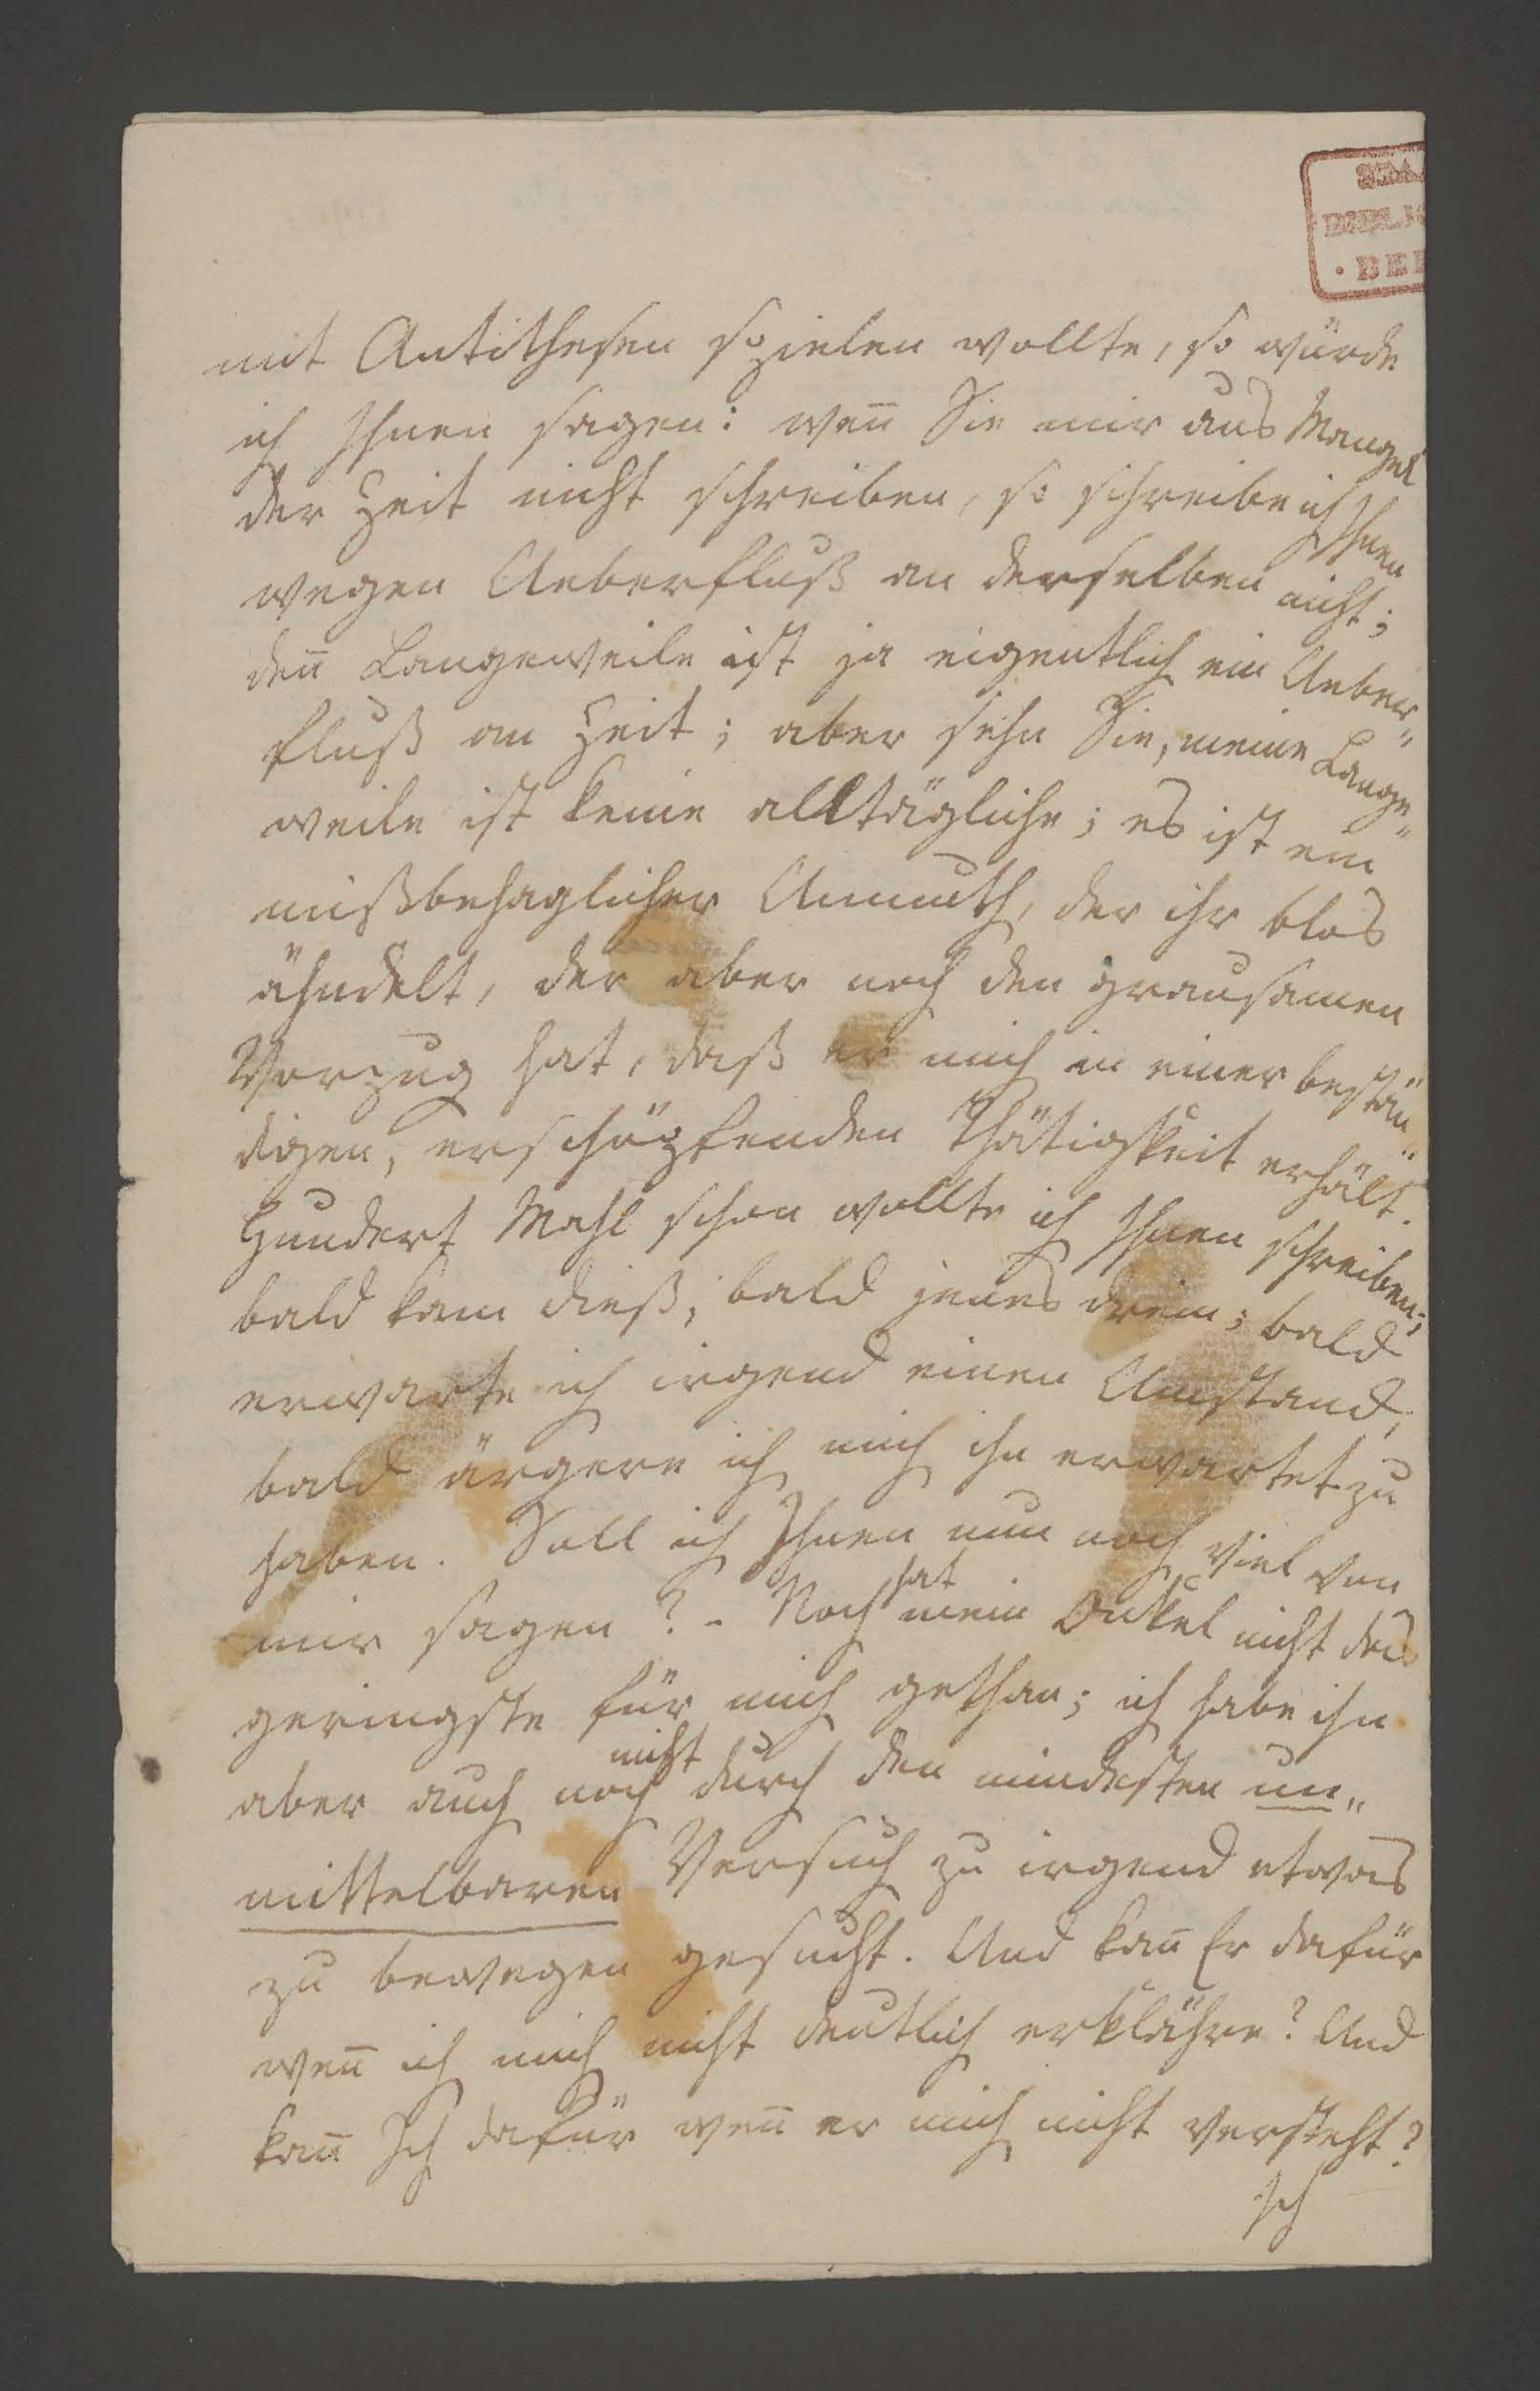 STAA
BIBLIO
• BER
mit Antithesen spielen wollte, so würde
ich Ihnen sagen: weñ Sie mir aus Mangel
der Zeit nicht schreiben, so schreibe ich Ihnen
wegen Ueberfluß an derselben nicht;
deñ Langeweile ist ja eigentlich ein Ueber„
fluß an Zeit; aber sehn Sie, meine Lange„
weile ist keine alltägliche; es ist ein
mißbehaglicher Unmuth, der ihr blos
ähndelt, der aber noch den grausamen
Vorzug hat, daß er mich in einer bestän„
digen, erschöpfenden Thätigkeit erhält.
Hundert Mahl schon wollte ich Ihnen schreiben;
bald kam dieß, bald jenes drein; bald
erwarte ich irgend einen Umstand,
bald ärgere ich mich ihn erwartet zu
haben. Soll ich Ihnen nun noch viel von
mir sagen? - Noch hat mein Onkel nicht das
geringste für mich gethan; ich habe ihn
aber auch noch nicht durch den mindesten un„
mittelbaren Versuch zu irgend etwas
zu bewegen gesucht. Und kañ Er dafür
weñ ich mich nicht deutlich erklähre? Und
kañ Ich dafür weñ er mich nicht versteht?
Ich